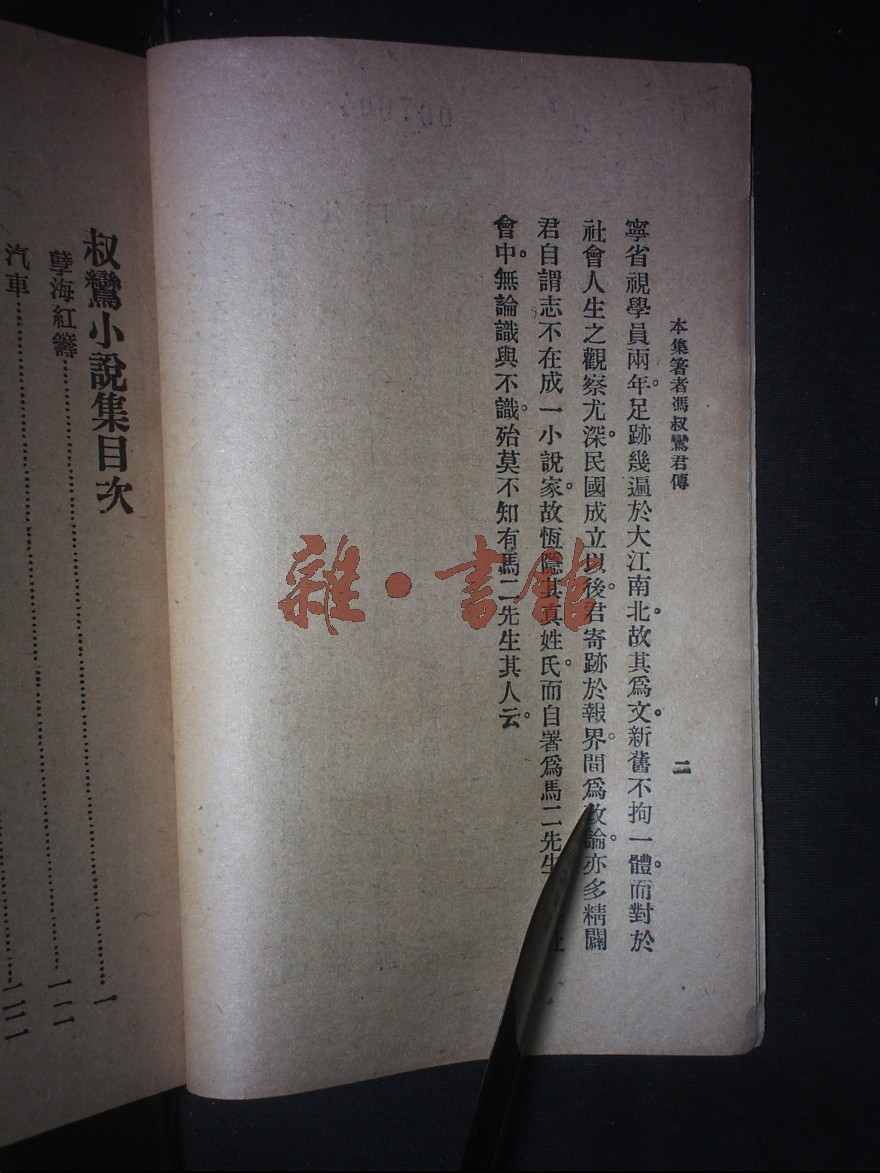 本集箸者馮叔鸞君傳
二
寧省視學員兩年。足跡幾遍於大江南北。故其爲文。新舊不拘一體。而對於
社會人生之觀察尤深。民國成立以後。君寄跡於報界。間爲政論。亦多精闢
君自謂志不在成一小說家。故恆隱其眞姓氏。而自署爲馬二先生
會中。無論識與不識。殆莫不知有馬二先生其人云。
叔鸞小說集目次
孽海紅籌
汽車
雜·書館